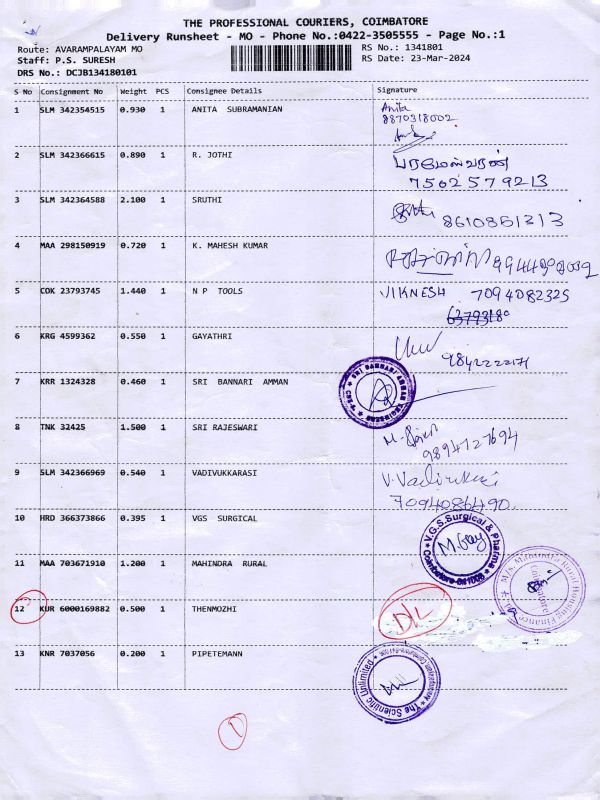 THE PROFESSIONAL COURIERS, COIMBATORE
Delivery Runsheet - MO - Phone No.:0422-3505555 - Page No.:1
Route: AVARAMPALAYAM MO RS No.: 1341801
Staff: P.S. SURESH RS Date: 23-Mar-2024
DRS No.: DCJB134180101
S No Consignment No Weight PCS Consignee Details Signature
1 SLM 342354515 0.930 1 ANITA SUBRAMANIAN Anita
8870318002
2 SLM 342366615 0.890 1 R. JOTHI பரமேஸ்வரன்
7502579213
3 SLM 342364588 2.100 1 SRUTHI 8610851213
4 MAA 298150919 0.720 1 K. MAHESH KUMAR
5 COK 23793745 1.440 1 N P TOOLS VIKNESH 7094082325
6 KRG 4599362 0.550 1 GAYATHRI
9842222171
7 KRR 1324328 0.460 1 SRI BANNARI AMMAN SRI BANNARI AMMAN
8 TNK 32425 1.500 1 SRI RAJESWARI
9894727694
9 SLM 342366969 0.540 1 VADIVUKKARASI
7094086490
10 HRD 366373866 0.395 1 VGS SURGICAL V.G.S. Surgical & Pharma
Coimbatore-641006
11 MAA 703671910 1.200 1 MAHINDRA RURAL M/s. Mahindra Rural Housing Finance
Coimbatore
12 KUR 6000169882 0.500 1 THENMOZHI D/L
13 KNR 7037056 0.200 1 PIPETEMANN The Scientific Unlimited
1